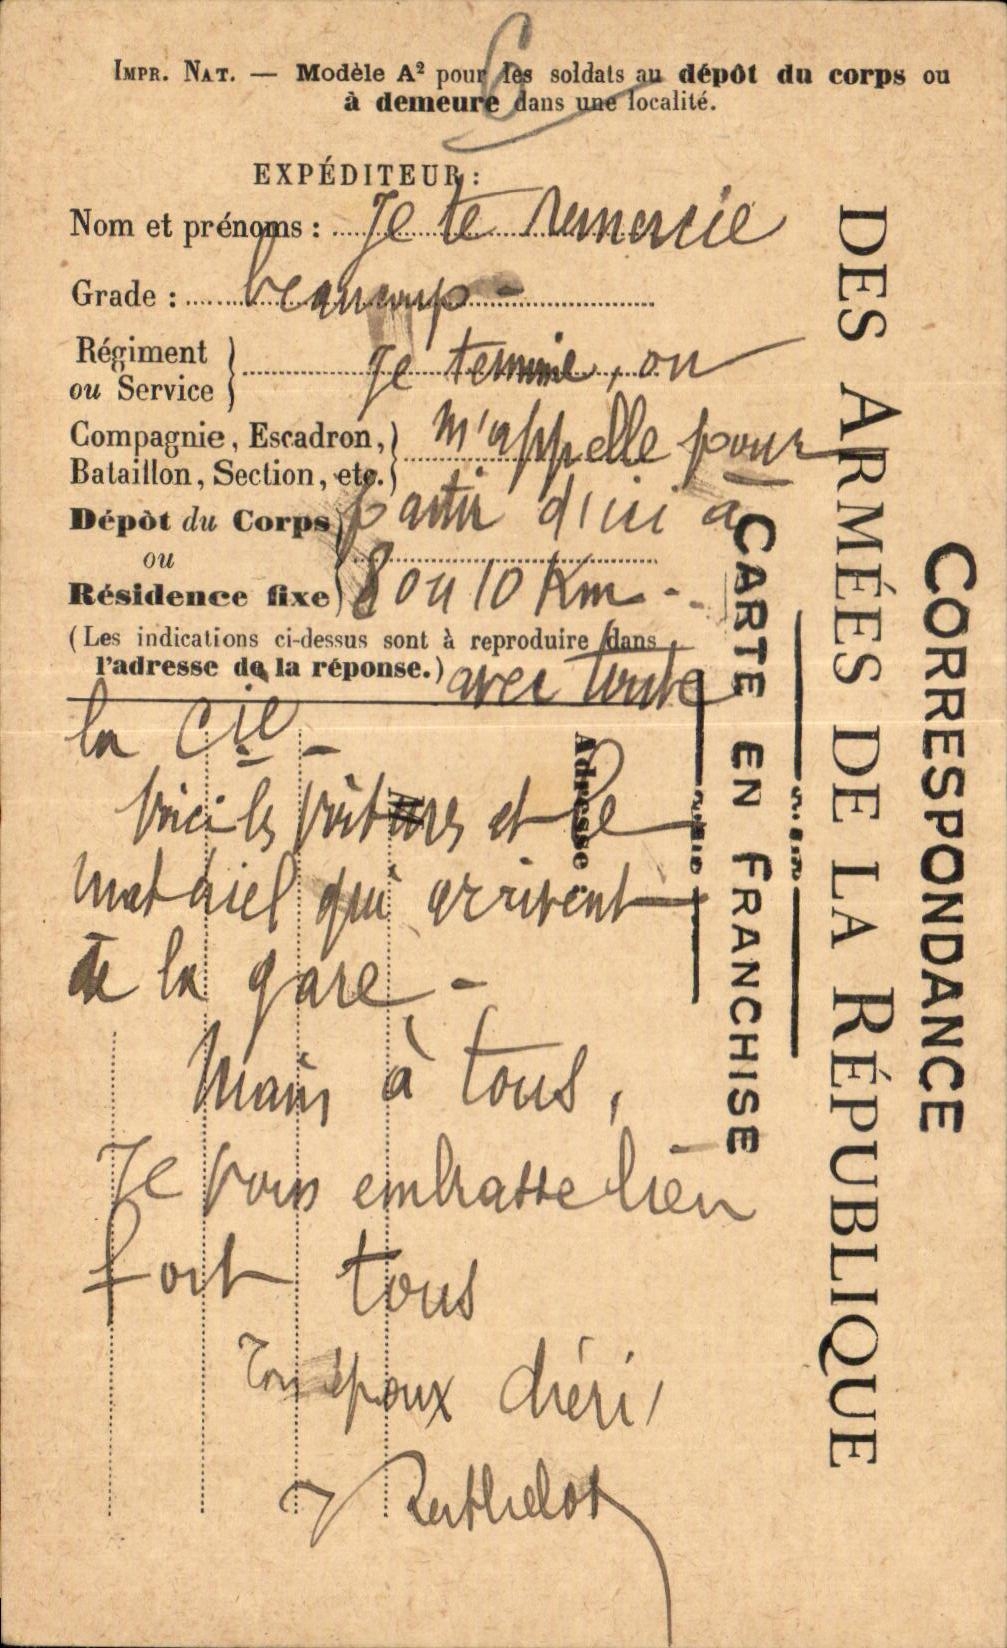 6
IMPR. NAT. — Modèle A² pour les soldats au dépôt du corps ou
à demeure dans une localité.
EXPÉDITEUR :
Nom et prénoms : Je te remercie
Grade : beaucoup -
Régiment
ou Service
Je termine, on
Compagnie, Escadron,
Bataillon, Section, etc.
m'appelle pour
Dépôt du Corps
ou
Résidence fixe
partir d'ici à
8 ou 10 Km -.
(Les indications ci-dessus sont à reproduire dans
l'adresse de la réponse.)
avec toute
la Cie -
Voici les voitures et le
matériel qui arrivent
de la gare -
Mains à tous,
Je vous embrasse bien
fort tous
Ton époux chéri,
J Berthelot
Adresse :
CARTE EN FRANCHISE
DES ARMÉES DE LA RÉPUBLIQUE
CORRESPONDANCE